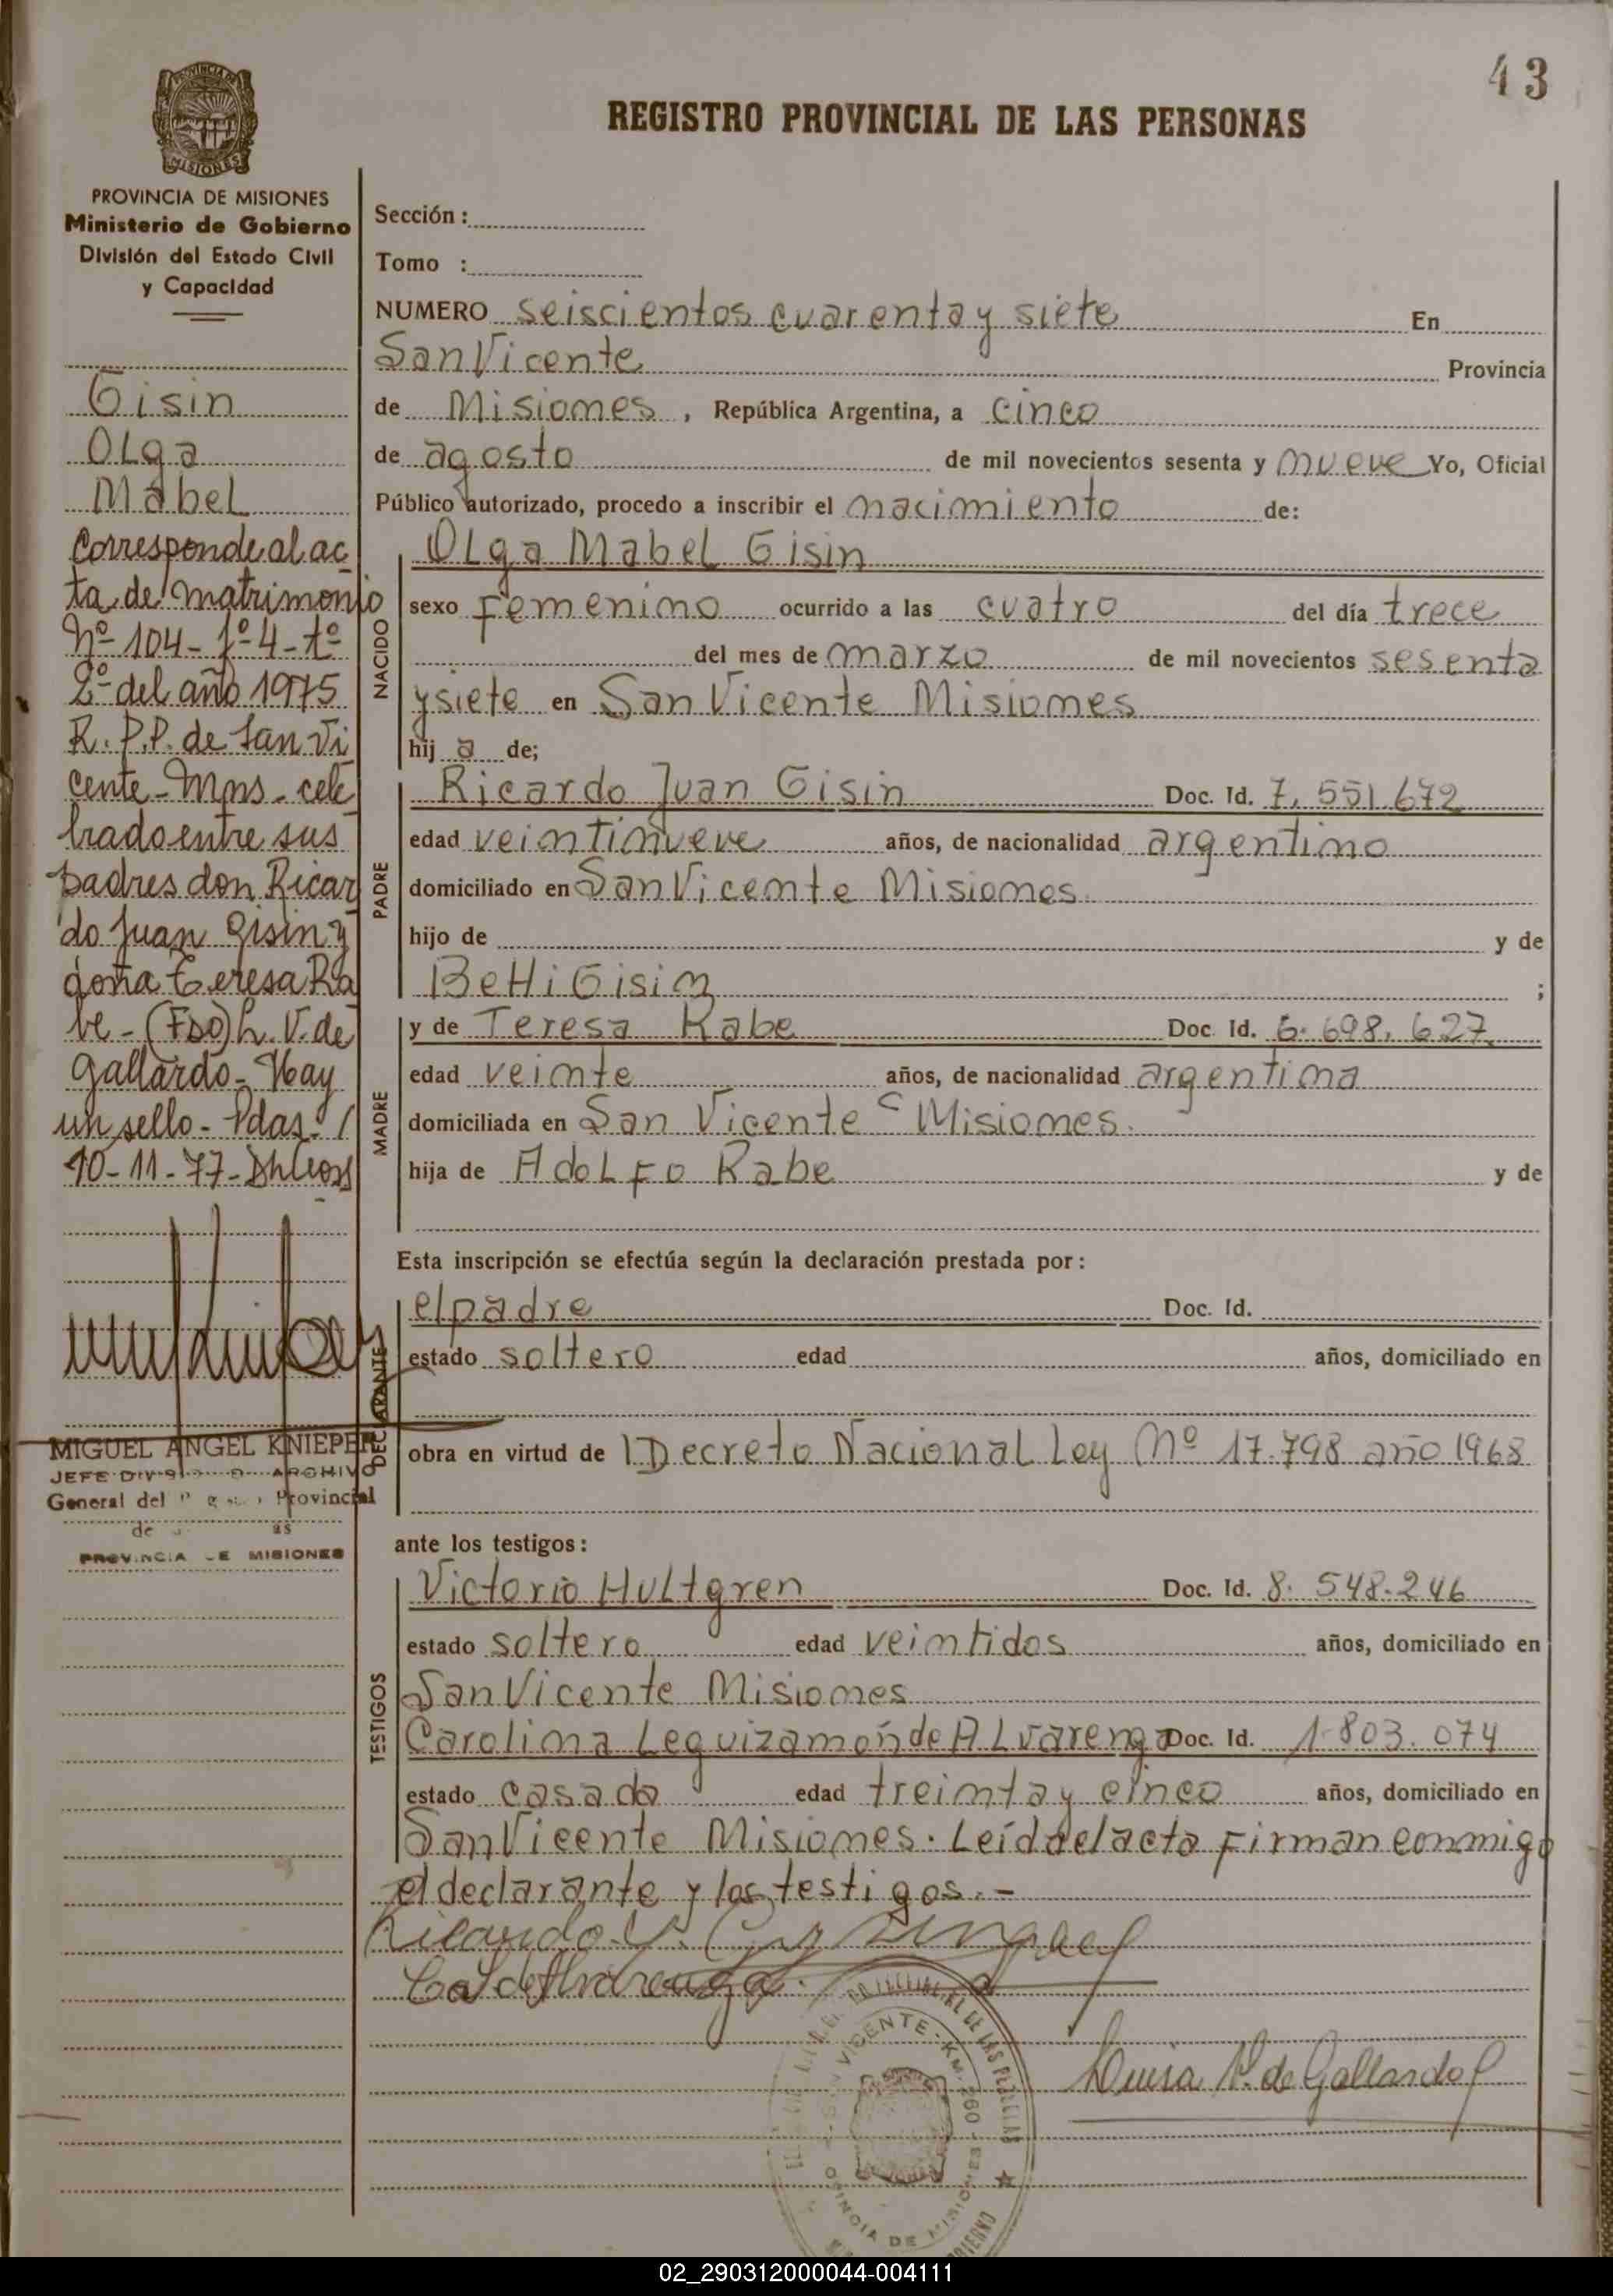 43
REGISTRO PROVINCIAL DE LAS PERSONAS
PROVINCIA DE
MISIONES
PROVINCIA DE MISIONES
Ministerio de Gobierno
División del Estado Civil
y Capacidad
Gisin
Olga
Mabel
Corresponde al ac
ta de matrimonio
Nº 104 - fº 4 - tº
2º del año 1975
R. P. P. de San Vi
cente - Mns - cele
brado entre sus
padres don Ricar
do Juan Gisin y
doña Teresa Ra
be - (Fdo) L. V. de
Gallardo - Hay
un sello - Pdas. /
10-11-77 -
MIGUEL ANGEL KNIEPER
JEFE ARCHIVO
General del Provincial
de
PROVINCIA DE MISIONES
Sección :
Tomo :
NUMERO seiscientos cuarenta y siete En
San Vicente Provincia
de Misiones, República Argentina, a cinco
de agosto de mil novecientos sesenta y nueve Yo, Oficial
Público autorizado, procedo a inscribir el nacimiento de:
NACIDO
Olga Mabel Gisin
sexo Femenino ocurrido a las cuatro del día trece
del mes de marzo de mil novecientos sesenta
y siete en San Vicente Misiones
hij a de;
PADRE
Ricardo Juan Gisin Doc. Id. 7.551.672
edad veintinueve años, de nacionalidad argentino
domiciliado en San Vicente Misiones.
hijo de y de
Betti Gisin ;
MADRE
y de Teresa Rabe Doc. Id. 6.698.627
edad veinte años, de nacionalidad argentina
domiciliada en San Vicente Misiones.
hija de Adolfo Rabe y de
Esta inscripción se efectúa según la declaración prestada por :
DECLARANTE
el padre Doc. Id.
estado soltero edad años, domiciliado en
obra en virtud de Decreto Nacional Ley Nº 17.798 año 1968
ante los testigos :
TESTIGOS
Victorio Hultgren Doc. Id. 8.548.246
estado soltero edad veintidos años, domiciliado en
San Vicente Misiones
Carolina Leguizamón de Alvarenga Doc. Id. 1.803.074
estado casada edad treinta y cinco años, domiciliado en
San Vicente Misiones. Leída el acta firman conmigo
el declarante y los testigos.-
Ricardo J.
C. L. de Alvarenga
PROVINCIAL DE LAS PERSONAS
VICENTE - KM. 260
PROVINCIA DE MISIONES
Luisa V. de Gallardo
02_290312000044-004111